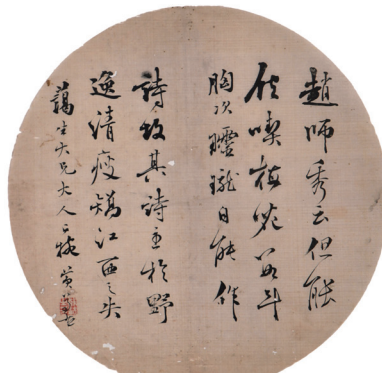 趙師秀云但能
飽喫梅花數斗
胸次玲瓏自能作
詩故其詩主於野
逸清瘦矯江西之失
藹生大兄大人正